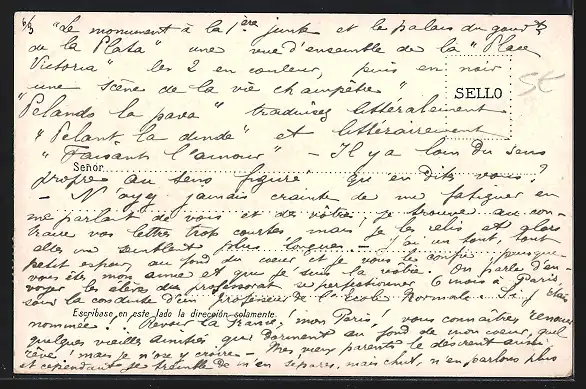 6/3 "Le monument à la 1ère junte et le palais du gouvt
de la Plata" une vue d'ensemble de la "Place
Victoria" les 2 en couleur, puis en noir
une scène de la vie champêtre"
SELLO
"Pelando la pava" traduisez littéralement
"Pelant la dinde" et littérairement
"Faisant l'amour" – Il y a loin du sens
Señor
propre au sens figuré qu'en dites vous?
– N'ayez jamais crainte de me fatiguer en
me parlant de vous et des vôtres, je trouve au con-
traire vos lettres trop courtes mais je les relis et alors
elles me semblent plus longues – J'ai un tout, tout
petit espoir, au fond du coeur et je vous le confie puisque
vous êtes mon amie et que je suis la vôtre. On parle d'en-
voyer les élèves du professorat se perfectionner 6 mois à Paris
sous la conduite d'un professeur de l'Ecole Normale. Si j'étais
Escríbase en este lado la dirección solamente.
nommée! Revoir la France! mon Paris! vous connaître, renouer
quelques vieilles amitiés qui dorment au fond de mon coeur, quel
rêve! mais je n'ose y croire – Mes vieux parents le désirent aussi
et cependant je tremble de m'en séparer, mais chut, n'en parlons plus